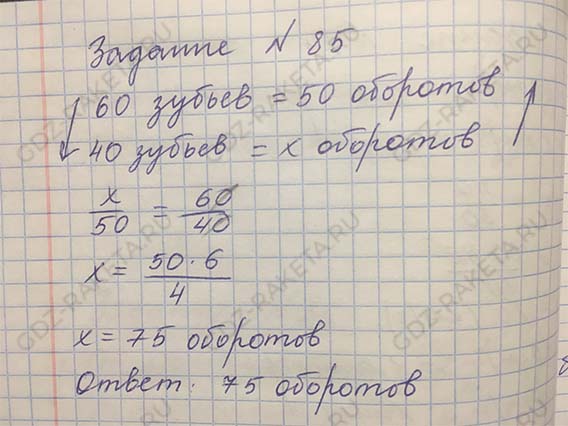 Задание № 85
60 зубьев = 50 оборотов
40 зубьев = х оборотов
х/50 = 60/40
х = 50·6/4
х = 75 оборотов
Ответ: 75 оборотов
GDZ-RAKETA.RU